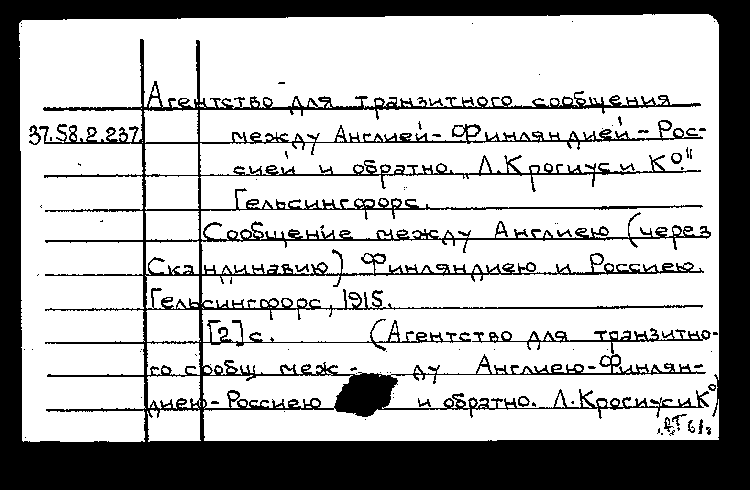 Агентство для транзитного сообщения
37.58.2.237. между Англией-Финляндией-Рос-
сией и обратно. „Л. Крогиус и К°."
Гельсингфорс.
Сообщение между Англиею (через
Скандинавию) Финляндиею и Россиею.
Гельсингфорс, 1915.
[2] с. (Агентство для транзитно-
го сообщ. меж- ду Англиею-Финлян-
диею-Россиею и обратно. Л. Крогиус и К°)